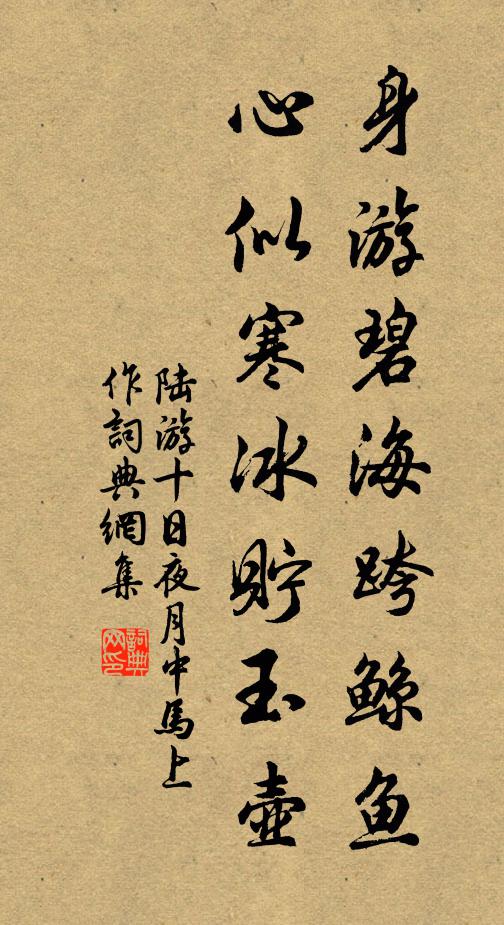 身游碧海跨鲸鱼
心似寒冰贮玉壶
陆游十日夜月中馬上
作詞典網集
詞典
网印